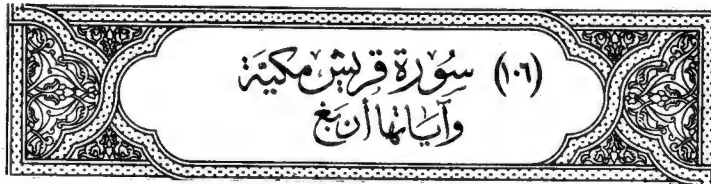 (١٠٦) سُورَة قريش مكيَّة
وَآيَاتها أربَع